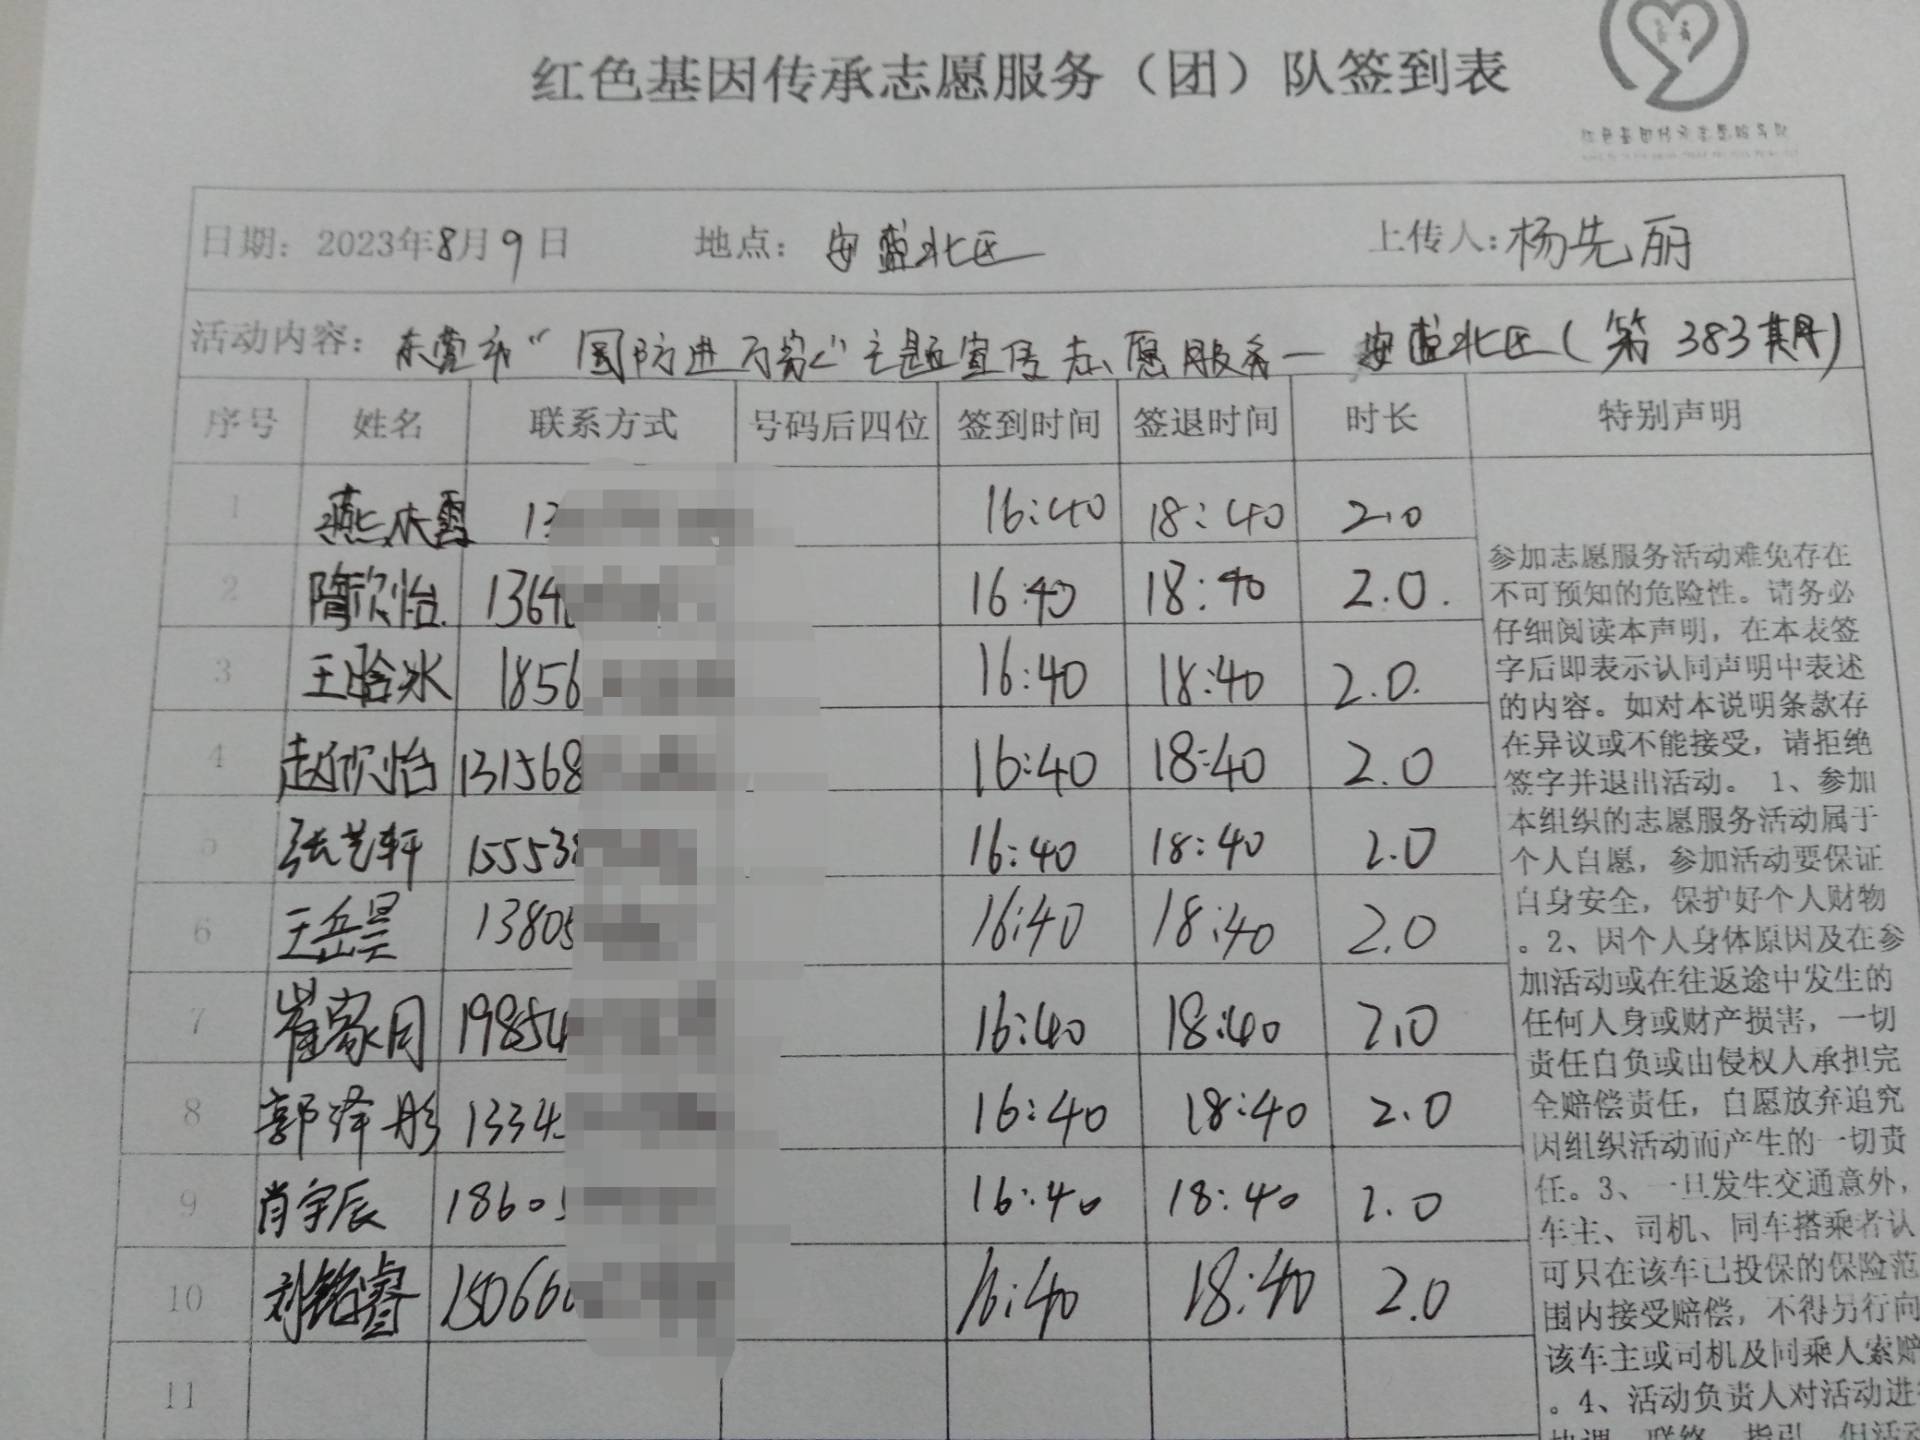 红色基因传承志愿服务（团）队签到表
日期：2023年8月9日 地点：安盘北区 上传人：杨先丽
活动内容：东营市“国防进万家”主题宣传志愿服务—安盘北区（第383期）
序号 姓名 联系方式 号码后四位 签到时间 签退时间 时长 特别声明
1 燕 雪 13 16:40 18:40 2.0
2 隋欣怡 1364 16:40 18:40 2.0
3 王晗冰 1856 16:40 18:40 2.0
4 赵欣怡 131568 16:40 18:40 2.0
5 张艺轩 15553 16:40 18:40 2.0
6 王岳昊 13805 16:40 18:40 2.0
7 崔家月 19854 16:40 18:40 2.0
8 郭泽彤 1334 16:40 18:40 2.0
9 肖宇辰 1860 16:40 18:40 2.0
10 刘铭睿 15066 16:40 18:40 2.0
11
参加志愿服务活动难免存在
不可预知的危险性。请务必
仔细阅读本声明，在本表签
字后即表示认同声明中表述
的内容。如对本说明条款存
在异议或不能接受，请拒绝
签字并退出活动。1、参加
本组织的志愿服务活动属于
个人自愿，参加活动要保证
自身安全，保护好个人财物
。2、因个人身体原因及在参
加活动或在往返途中发生的
任何人身或财产损害，一切
责任自负或由侵权人承担完
全赔偿责任，自愿放弃追究
因组织活动而产生的一切责
任。3、一旦发生交通意外，
车主、司机、同车搭乘者认
可只在该车已投保的保险范
围内接受赔偿，不得另行向
该车主或司机及同乘人索赔
。4、活动负责人对活动进